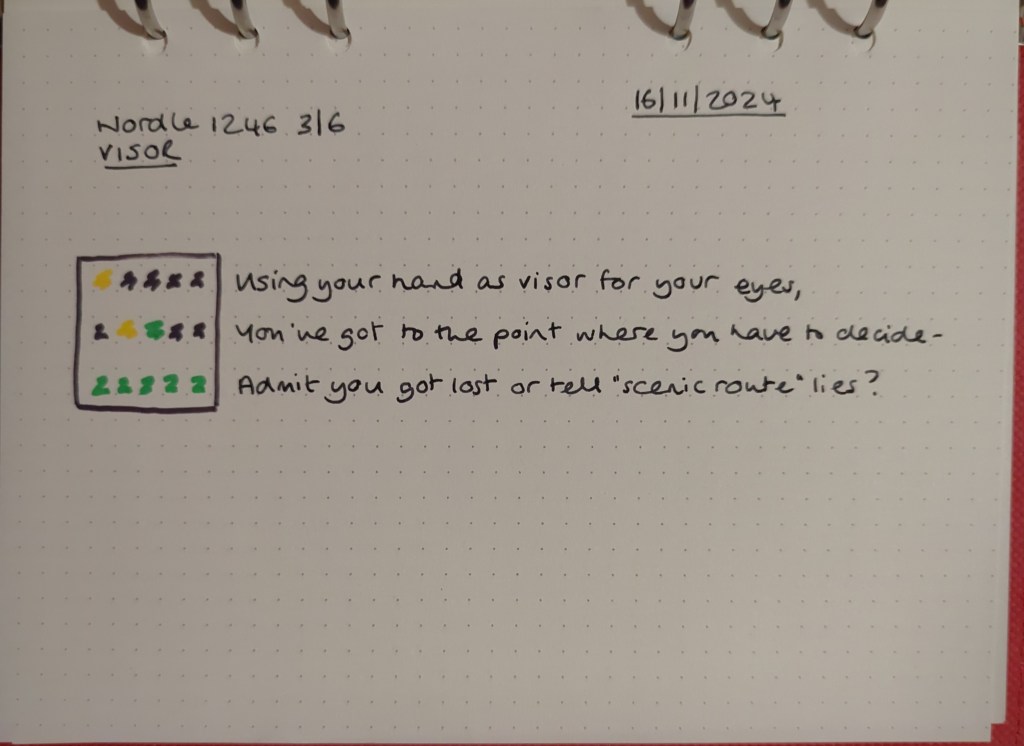 16/11/2024
Wordle 1246 3/6
VISOR
Using your hand as visor for your eyes,
You've got to the point where you have to decide-
Admit you got lost or tell "scenic route" lies?